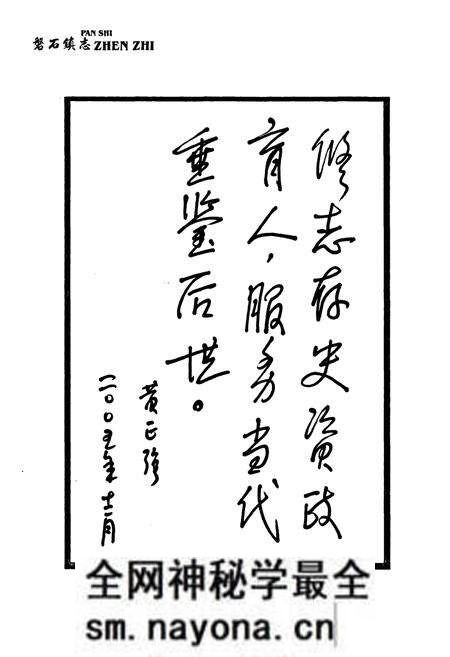 PAN SHI
磐石镇志 ZHEN ZHI
修志存史资政
育人，服务当代
垂鉴后世。
黄正强
二〇〇五年十二月
全网神秘学最全
sm.nayona.cn